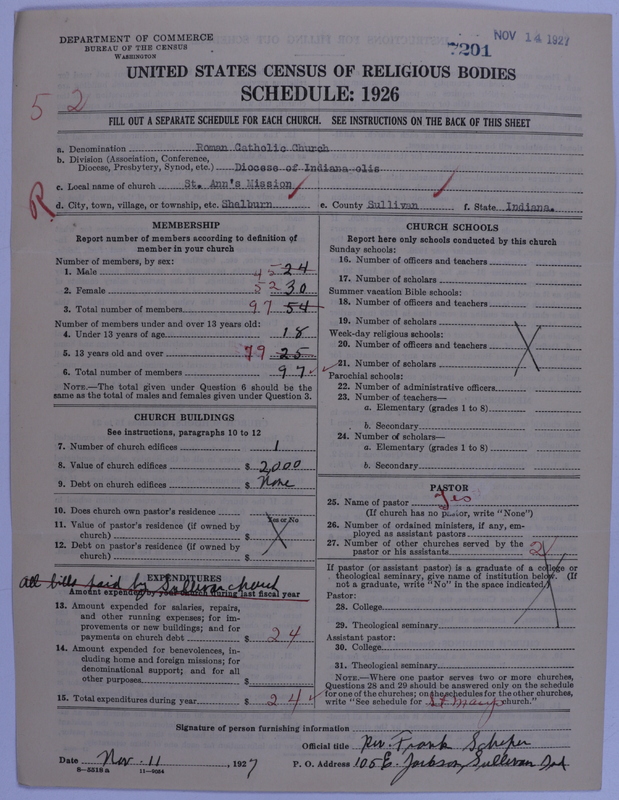 DEPARTMENT OF COMMERCE
BUREAU OF THE CENSUS
WASHINGTON
7201
NOV 14 1927
UNITED STATES CENSUS OF RELIGIOUS BODIES
SCHEDULE: 1926
52
FILL OUT A SEPARATE SCHEDULE FOR EACH CHURCH. SEE INSTRUCTIONS ON THE BACK OF THIS SHEET
a. Denomination Roman Catholic Church
b. Division (Association, Conference,
Diocese, Presbytery, Synod, etc.) Diocese of Indiana olis
c. Local name of church St. Ann's Mission
R
d. City, town, village, or township, etc. Shelburn e. County Sullivan f. State Indiana.
MEMBERSHIP
Report number of members according to definition of
member in your church
Number of members, by sex:
1. Male 45 24
2. Female 52 30
3. Total number of members 97 54
Number of members under and over 13 years old:
4. Under 13 years of age 18
5. 13 years old and over 79 25
6. Total number of members 97
NOTE.—The total given under Question 6 should be the
same as the total of males and females given under Question 3.
CHURCH BUILDINGS
See instructions, paragraphs 10 to 12
7. Number of church edifices 1
8. Value of church edifices $ 2000
9. Debt on church edifices $ None
10. Does church own pastor's residence
Yes or No
11. Value of pastor's residence (if owned by
church) $
12. Debt on pastor's residence (if owned by
church) $
EXPENDITURES
all bills paid by Sullivan church
Amount expended by your church during last fiscal year
13. Amount expended for salaries, repairs,
and other running expenses; for im-
provements or new buildings; and for
payments on church debt $ 24
14. Amount expended for benevolences, in-
cluding home and foreign missions; for
denominational support; and for all
other purposes $
15. Total expenditures during year $ 24
CHURCH SCHOOLS
Report here only schools conducted by this church
Sunday schools:
16. Number of officers and teachers
17. Number of scholars
Summer vacation Bible schools:
18. Number of officers and teachers
19. Number of scholars
Week-day religious schools:
20. Number of officers and teachers
21. Number of scholars
Parochial schools:
22. Number of administrative officers
23. Number of teachers—
a. Elementary (grades 1 to 8)
b. Secondary
24. Number of scholars—
a. Elementary (grades 1 to 8)
b. Secondary
PASTOR
25. Name of pastor Yes
(If church has no pastor, write "None")
26. Number of ordained ministers, if any, em-
ployed as assistant pastors
27. Number of other churches served by the
pastor or his assistants 2
If pastor (or assistant pastor) is a graduate of a college or
theological seminary, give name of institution below. (If
not a graduate, write "No" in the space indicated)
Pastor:
28. College
29. Theological seminary
Assistant pastor:
30. College
31. Theological seminary
NOTE.—Where one pastor serves two or more churches,
Questions 28 and 29 should be answered only on the schedule
for one of the churches; on the schedules for the other churches,
write "See schedule for St Marys church."
Signature of person furnishing information
Official title Rev. Frank Scheper
Date Nov. 11, 1927 P. O. Address 105 E. Jackson, Sullivan Ind
8—5318 a 11—9034